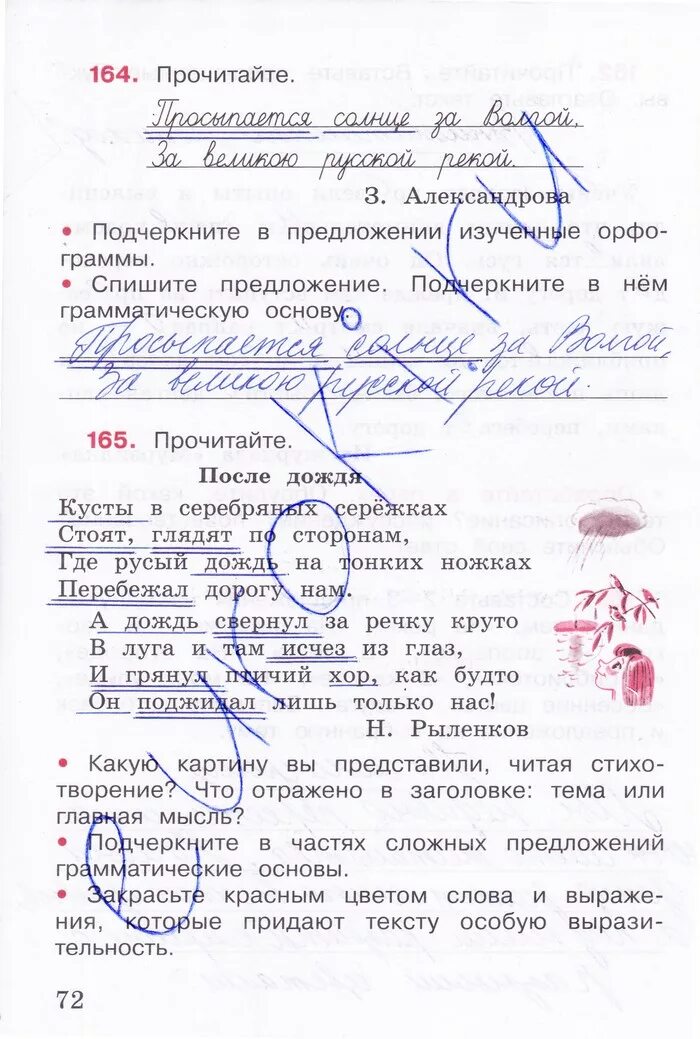 164. Прочитайте.
Просыпается солнце за Волгой,
За великою русской рекой.
З. Александрова
• Подчеркните в предложении изученные орфо-
граммы.
• Спишите предложение. Подчеркните в нём
грамматическую основу.
Просыпается солнце за Волгой
За великою русской рекой.
165. Прочитайте.
После дождя
Кусты в серебряных серёжках
Стоят, глядят по сторонам,
Где русый дождь на тонких ножках
Перебежал дорогу нам.
А дождь свернул за речку круто
В луга и там исчез из глаз,
И грянул птичий хор, как будто
Он поджидал лишь только нас!
Н. Рыленков
• Какую картину вы представили, читая стихо-
творение? Что отражено в заголовке: тема или
главная мысль?
• Подчеркните в частях сложных предложений
грамматические основы.
• Закрасьте красным цветом слова и выраже-
ния, которые придают тексту особую вырази-
тельность.
72